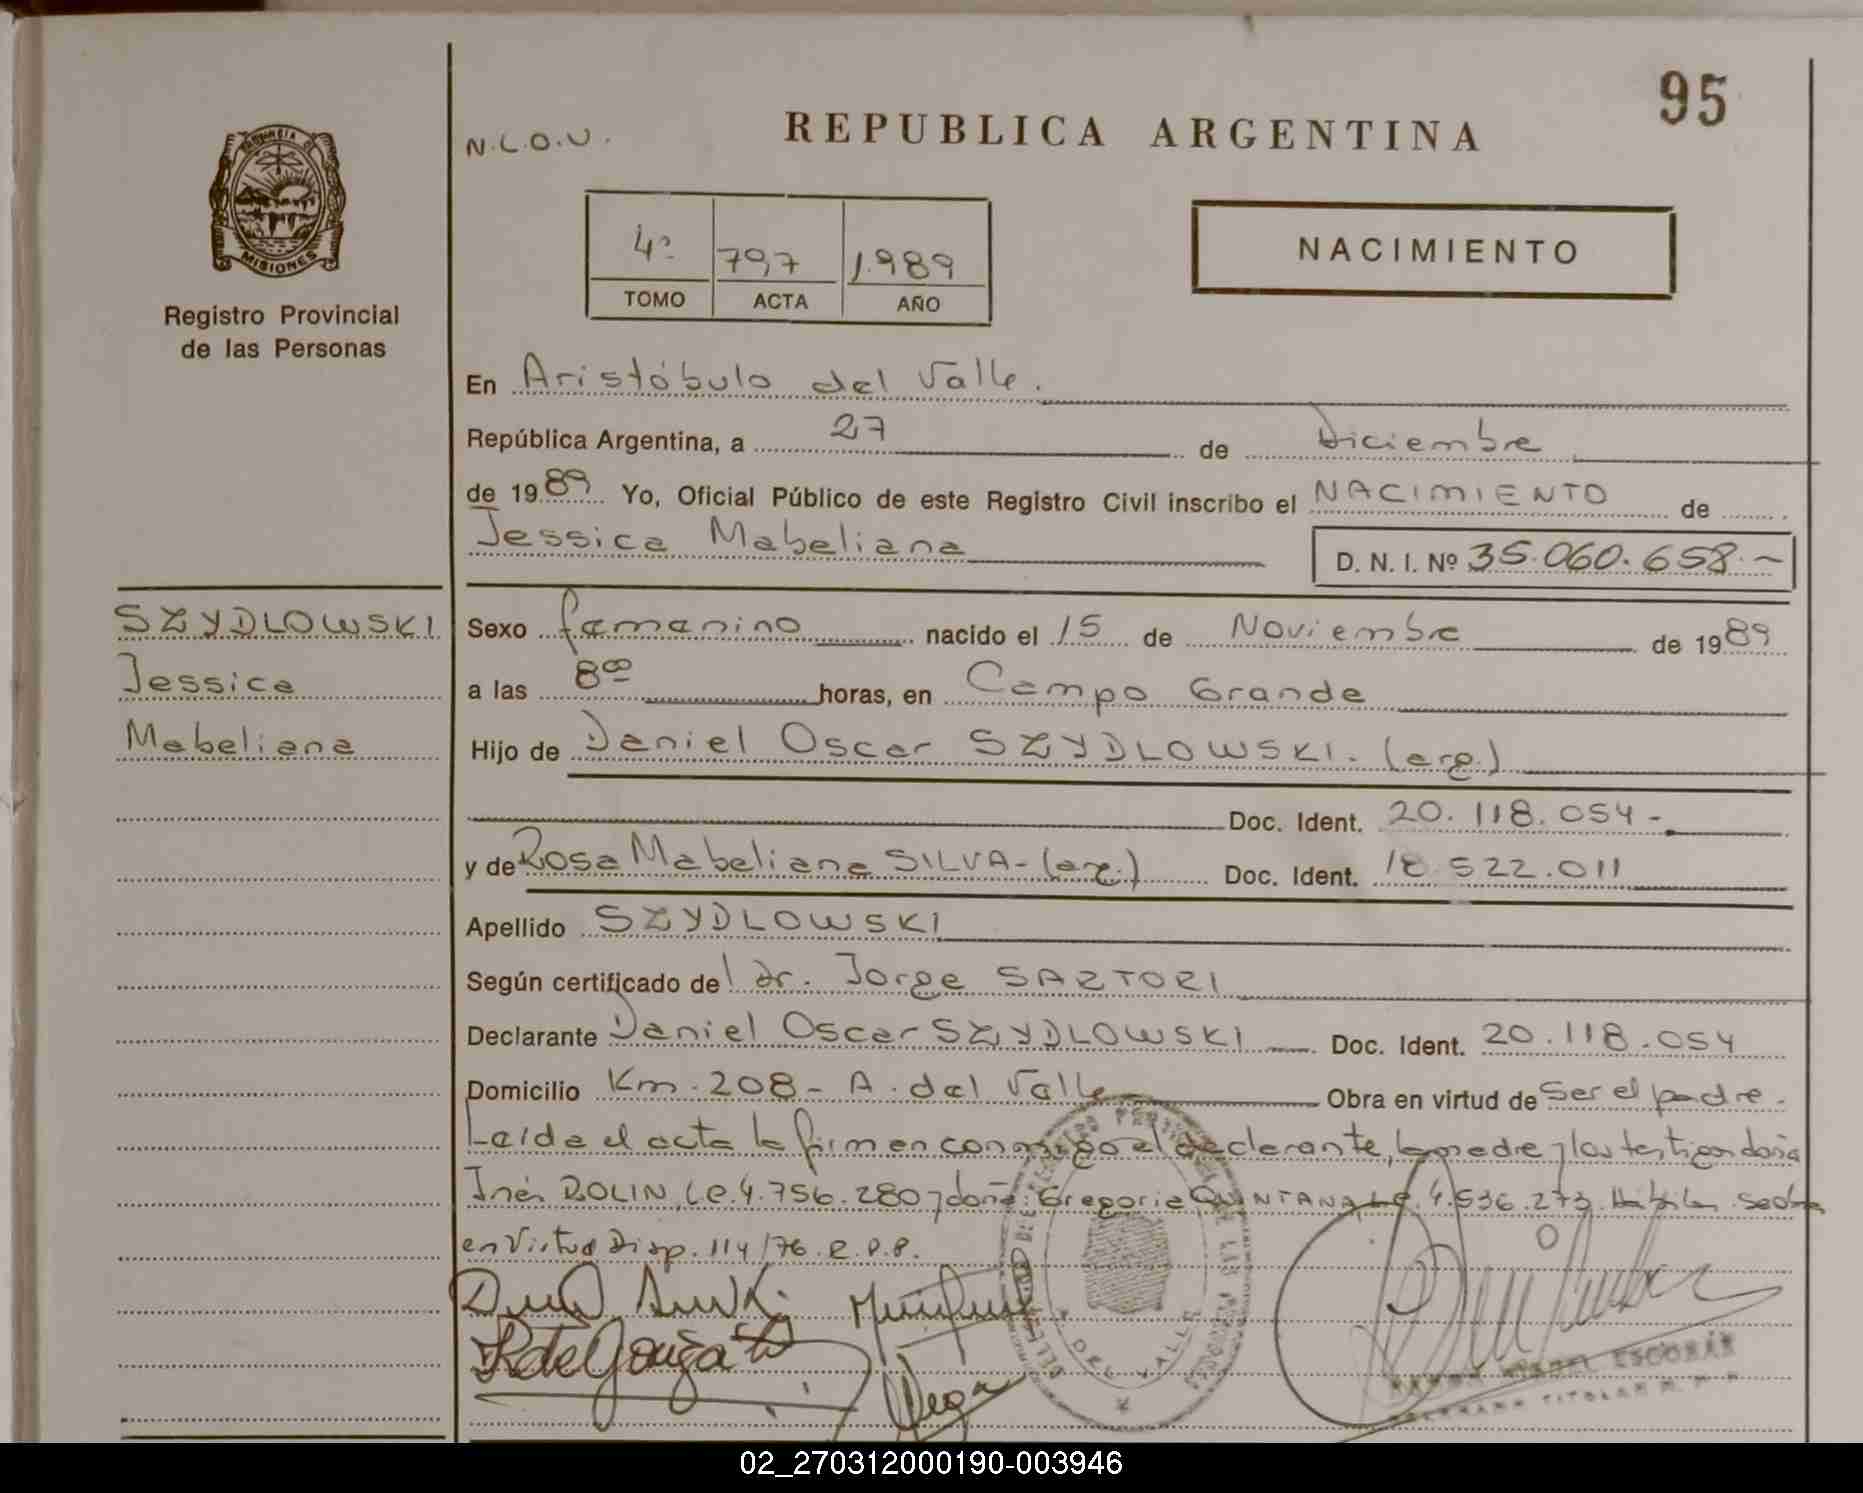 95
REPUBLICA ARGENTINA
N.L.O.U.
PROVINCIA DE
MISIONES
Registro Provincial
de las Personas
NACIMIENTO
4º 797 1.989
TOMO ACTA AÑO
En Aristóbulo del Valle.
República Argentina, a 27 de Diciembre
de 1989 Yo, Oficial Público de este Registro Civil inscribo el NACIMIENTO de
Jessica Mabeliana
D. N. I. Nº 35.060.658.-
SZYDLOWSKI
Jessica
Mabeliana
Sexo femenino nacido el 15 de Noviembre de 1989
a las 8⁰⁰ horas, en Campo Grande
Hijo de Daniel Oscar SZYDLOWSKI. (arg.)
Doc. Ident. 20.118.054-
y de Rosa Mabeliana SILVA-(arg.) Doc. Ident. 18.522.011
Apellido SZYDLOWSKI
Según certificado del Dr. Jorge SARTORI
Declarante Daniel Oscar SZYDLOWSKI Doc. Ident. 20.118.054
Domicilio Km. 208 - A. del Valle Obra en virtud de ser el padre.
Leída el acta la firman conmigo el declarante, la madre y los testigos doña
Inés ROLIN, l.c. 4.756.280 y doña Gregoria QUINTANA, l.c. 4.536.273
en virtud Disp. 114/76.R.P.P.
Vega
ESCOBAR
TITULAR
DEL VALLE
02_270312000190-003946